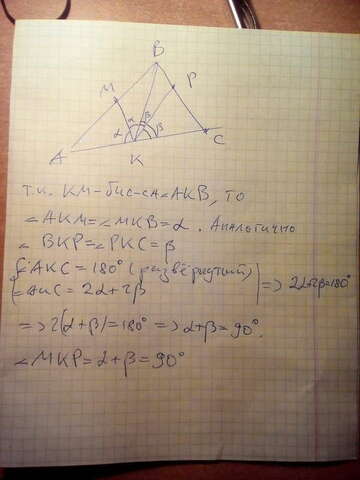 B
M
P
α α β β
A
K
C
т.к. KM-бис-са ∠AKB, то
∠AKM=∠MKB=α. Аналогично
∠BKP=∠PKC=β
∠AKC=180° (развёрнутый)
=2α+2β
=> 2α+2β=180°
=>2(α+β)=180° => α+β=90°.
∠MKP=α+β=90°